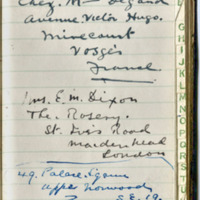 Chez M— Legand
Avenue Victor Hugo.
Mirecourt
Vosges
France
Mrs. E. M. Dixon
The Rosery.
St. Ives Road
Maidenhead
London
49. Palace Square
Upper Norwood
S.E. 19.
G
H
I
J
K
L
M
N
O
P
Q
R
S
T
U